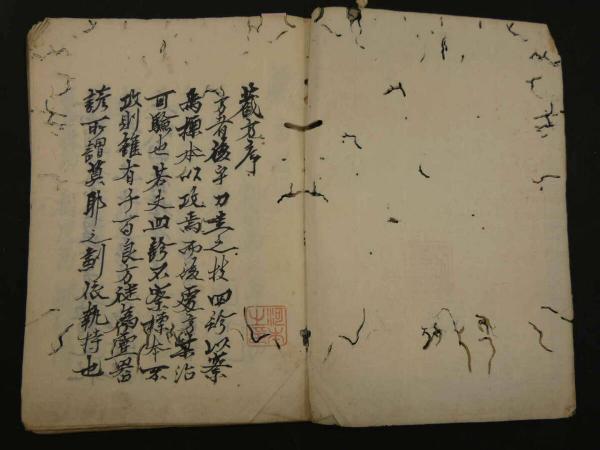 藏方序
方者後乎刀圭之技四診以察
為標本以改焉而後處方藥治
可驗也若夫四診不察標本不
攻則雖有千百良方徒為虛器
諺所謂莫耶之劍依執持也